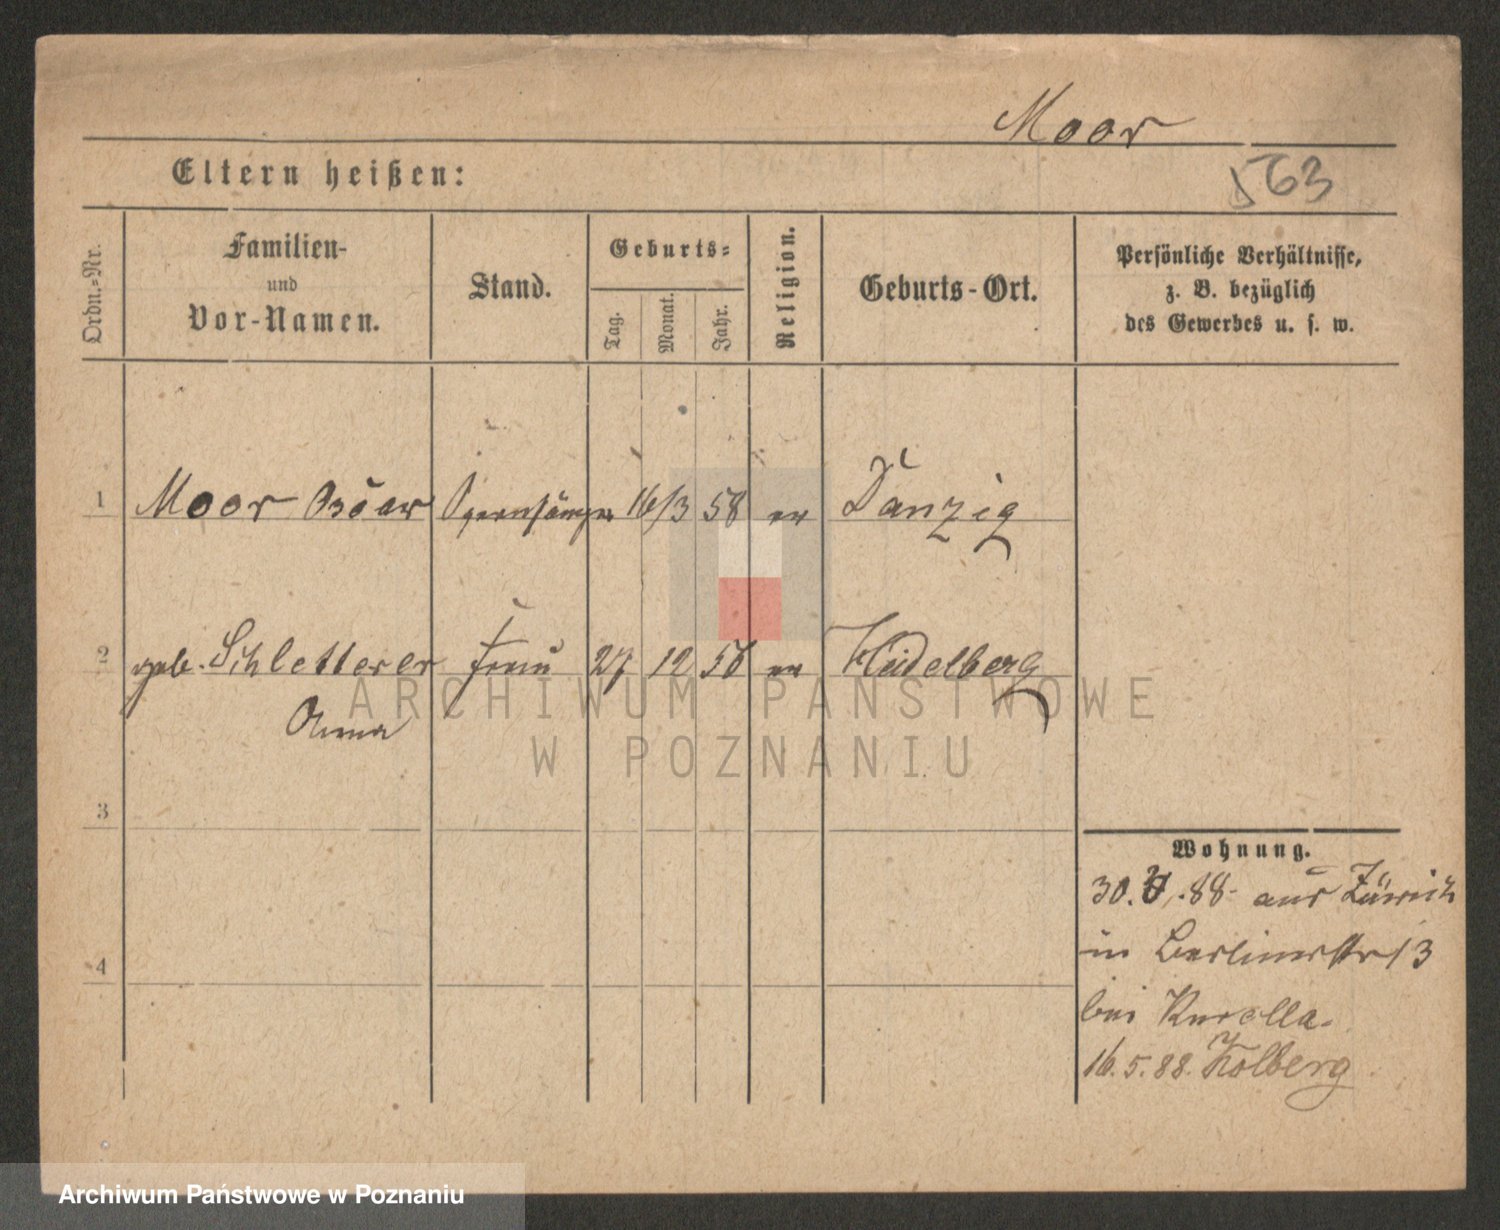 Moor
563
Eltern heißen:
Ordn.-Nr.
Familien-
und
Vor-Namen.
Stand.
Geburts-
Tag.
Monat.
Jahr.
Religion.
Geburts-Ort.
Persönliche Verhältnisse,
z. B. bezüglich
des Gewerbes u. s. w.
1 Moor Oscar Opernsänger 16/3 58 ev Danzig
2 geb. Schletterer Frau 27 12 56 ev Heidelberg
Anna
3
4
Wohnung.
30. .88 aus Zürich
in Berlinerstr 13
bei
16.5.88. Kolberg
ARCHIWUM PAŃSTWOWE
W POZNANIU
Archiwum Państwowe w Poznaniu